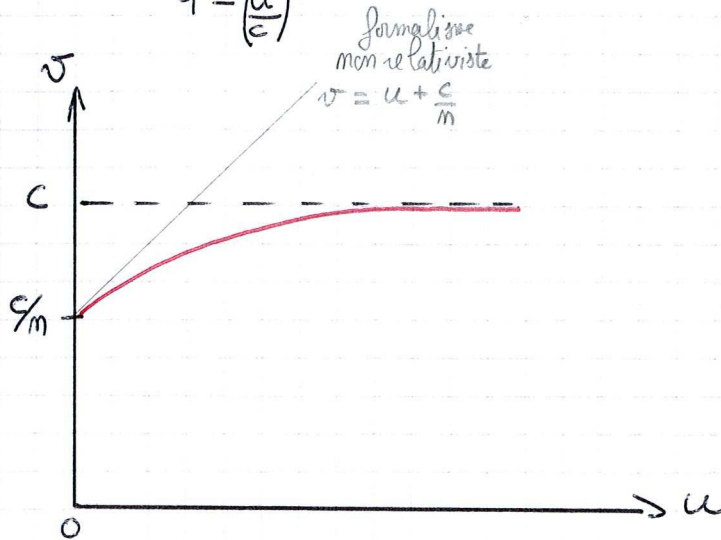 1 - (u/c)
formalisme
non relativiste
v = u + c/n
v
c
c/n
0
u